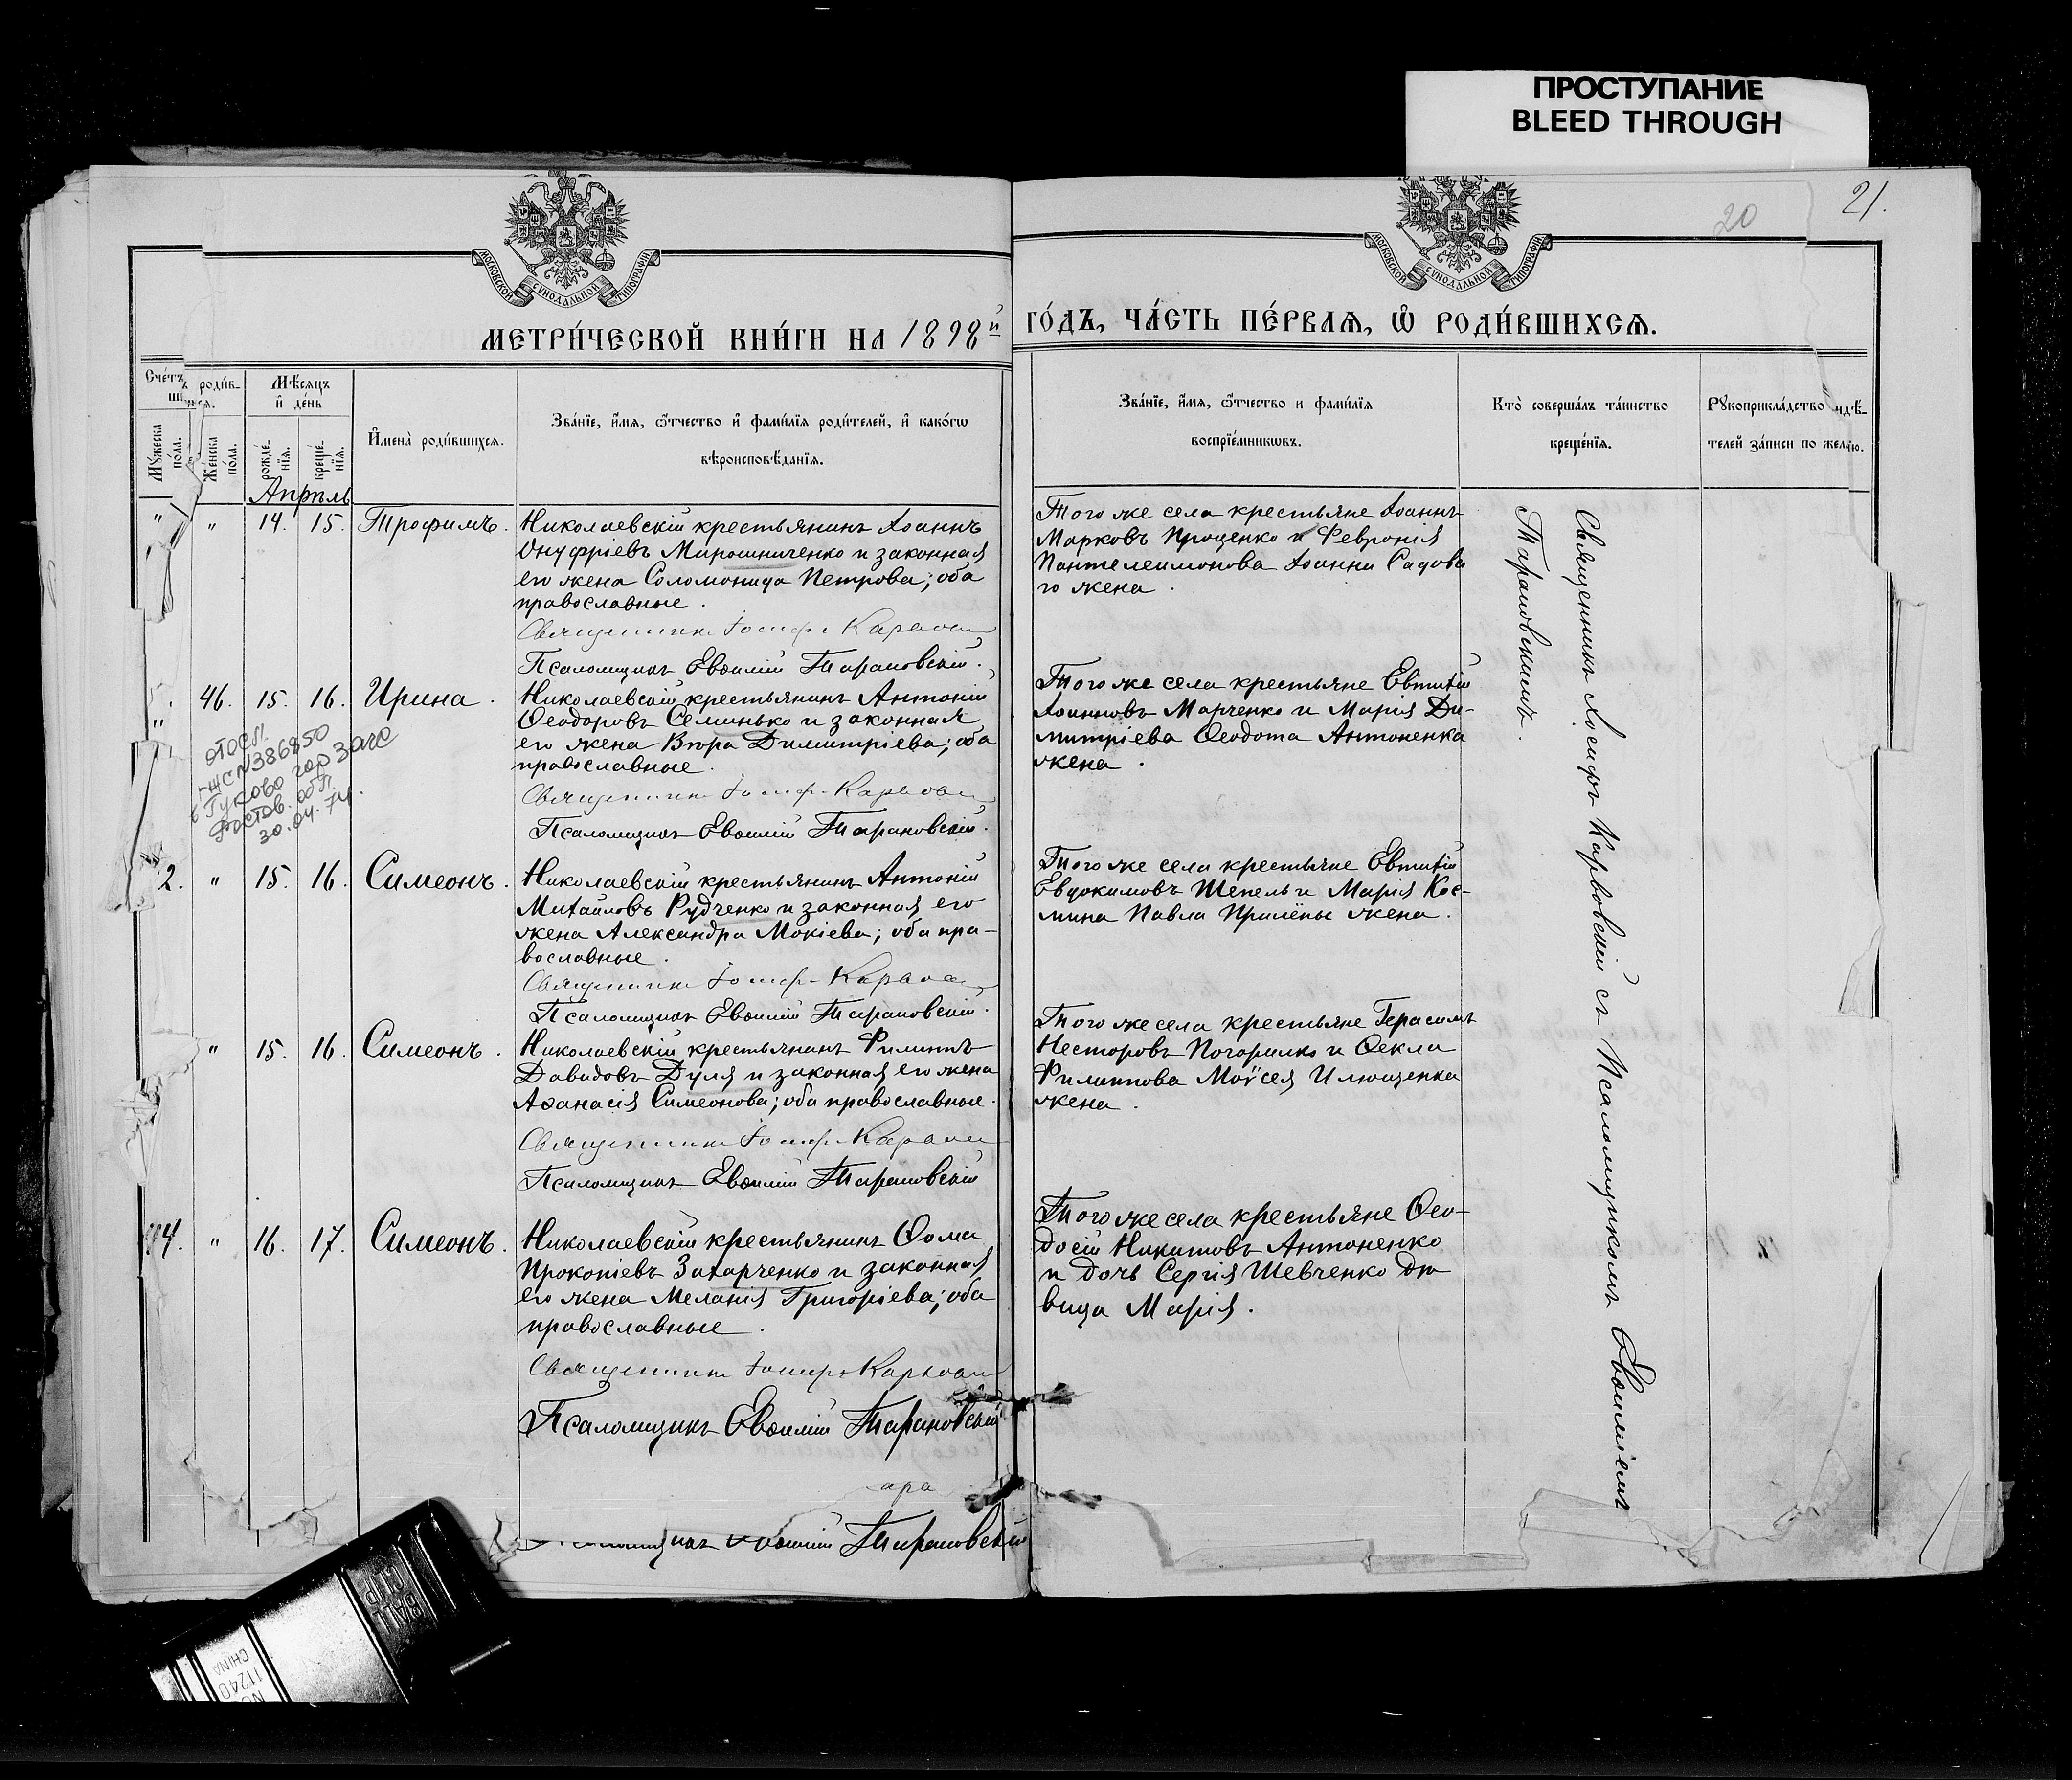 ПРОСТУПАНИЕ
BLEED THROUGH
20
21.
МОСКОВСКОЙ СУНОДАЛЬНОЙ ТИПОГРАФІИ
МОСКОВСКОЙ СУНОДАЛЬНОЙ ТИПОГРАФІИ
МЕТРИ́ЧЕСКОЙ КНИ́ГИ НА 1898й
ГО́ДЪ, ЧА́СТЬ ПЕ́РВАѦ, Ѽ РОДИ́ВШИХСѦ.
Сче́тъ роди́в-
Мѣ́сяцъ
и҆ де́нь
Му́жеска по́ла.
Же́нска по́ла.
рожде́нїѧ.
креще́нїѧ.
И҆мена̀ роди́вшихсѧ.
Зва́нїе, и҆́мѧ, ѻ҆́тчество и҆ фами́лїѧ роди́телей, и҆ како́гѡ
вѣроисповѣ́данїѧ.
Зва́нїе, и҆́мѧ, ѻ҆́тчество и фами́лїѧ
воспрїе́мникѡвъ.
Кто̀ соверша́лъ та́инство
креще́нїѧ.
Рꙋкоприкла́дство
телей за́писи по
Апрѣль
" " 14. 15. Трофимъ.
Николаевскій крестьянинъ Іоаннъ
Онуфріевъ Мирошниченко и законная
его жена Соломонида Петрова; оба
православные.
Священникъ Іосифъ
Псаломщикъ Евѳимій Тарановскій.
Того же села крестьяне Іоаннъ
Марковъ Проценко и Февронія
Пантелеимонова Іоанна Садова
го жена.
46. 15. 16. Ирина.
Николаевскій крестьянинъ Антоній
Ѳеодоровъ Семинько и законная
его жена Вѣра Димитріева; оба
православные.
Священникъ Іосифъ
Псаломщикъ Евѳимій Тарановскій.
Того же села крестьяне Евтихій
Іоанновъ Марченко и Марія Ди-
митріева Ѳеодота Антоненка
жена.
N386850
Гуково гор Загс
Ростов. обл.
30.04.74.
2. " 15. 16. Симеонъ.
Николаевскій крестьянинъ Антоній
Михаиловъ Рудченко и законная его
жена Александра Мокіева; оба пра-
вославные.
Священникъ Іосифъ
Псаломщикъ Евѳимій Тарановскій.
Того же села крестьяне Евтихій
Евдокимовъ Шепель и Марія Кос-
мина Павла Прилёпы жена.
" 15. 16. Симеонъ.
Николаевскій крестьянинъ Филиппъ
Давидовъ Дуля и законная его жена
Аѳанасія Симеонова; оба православные.
Священникъ Іосифъ
Псаломщикъ Евѳимій Тарановскій
Того же села крестьяне Герасимъ
Несторовъ Погорилко и Ѳекла
Филиппова Моѵсея Илющенка
жена.
4. " 16. 17. Симеонъ.
Николаевскій крестьянинъ Ѳома
Прокопіевъ Захарченко и законная
его жена Меланія Григоріева; оба
православные.
Священникъ Іосифъ
Псаломщикъ Евѳимій Тарановскій
Того же села крестьяне Ѳео-
досій Никитовъ Антоненко
и дочь Сергія Шевченко дѣ
вица Марія.
Священникъ Іосифъ Карповскій съ Псаломщикомъ Евѳиміемъ
Тарановскимъ.
Евѳимій Тарановскій
BALL
CLIP
11240
CHINA